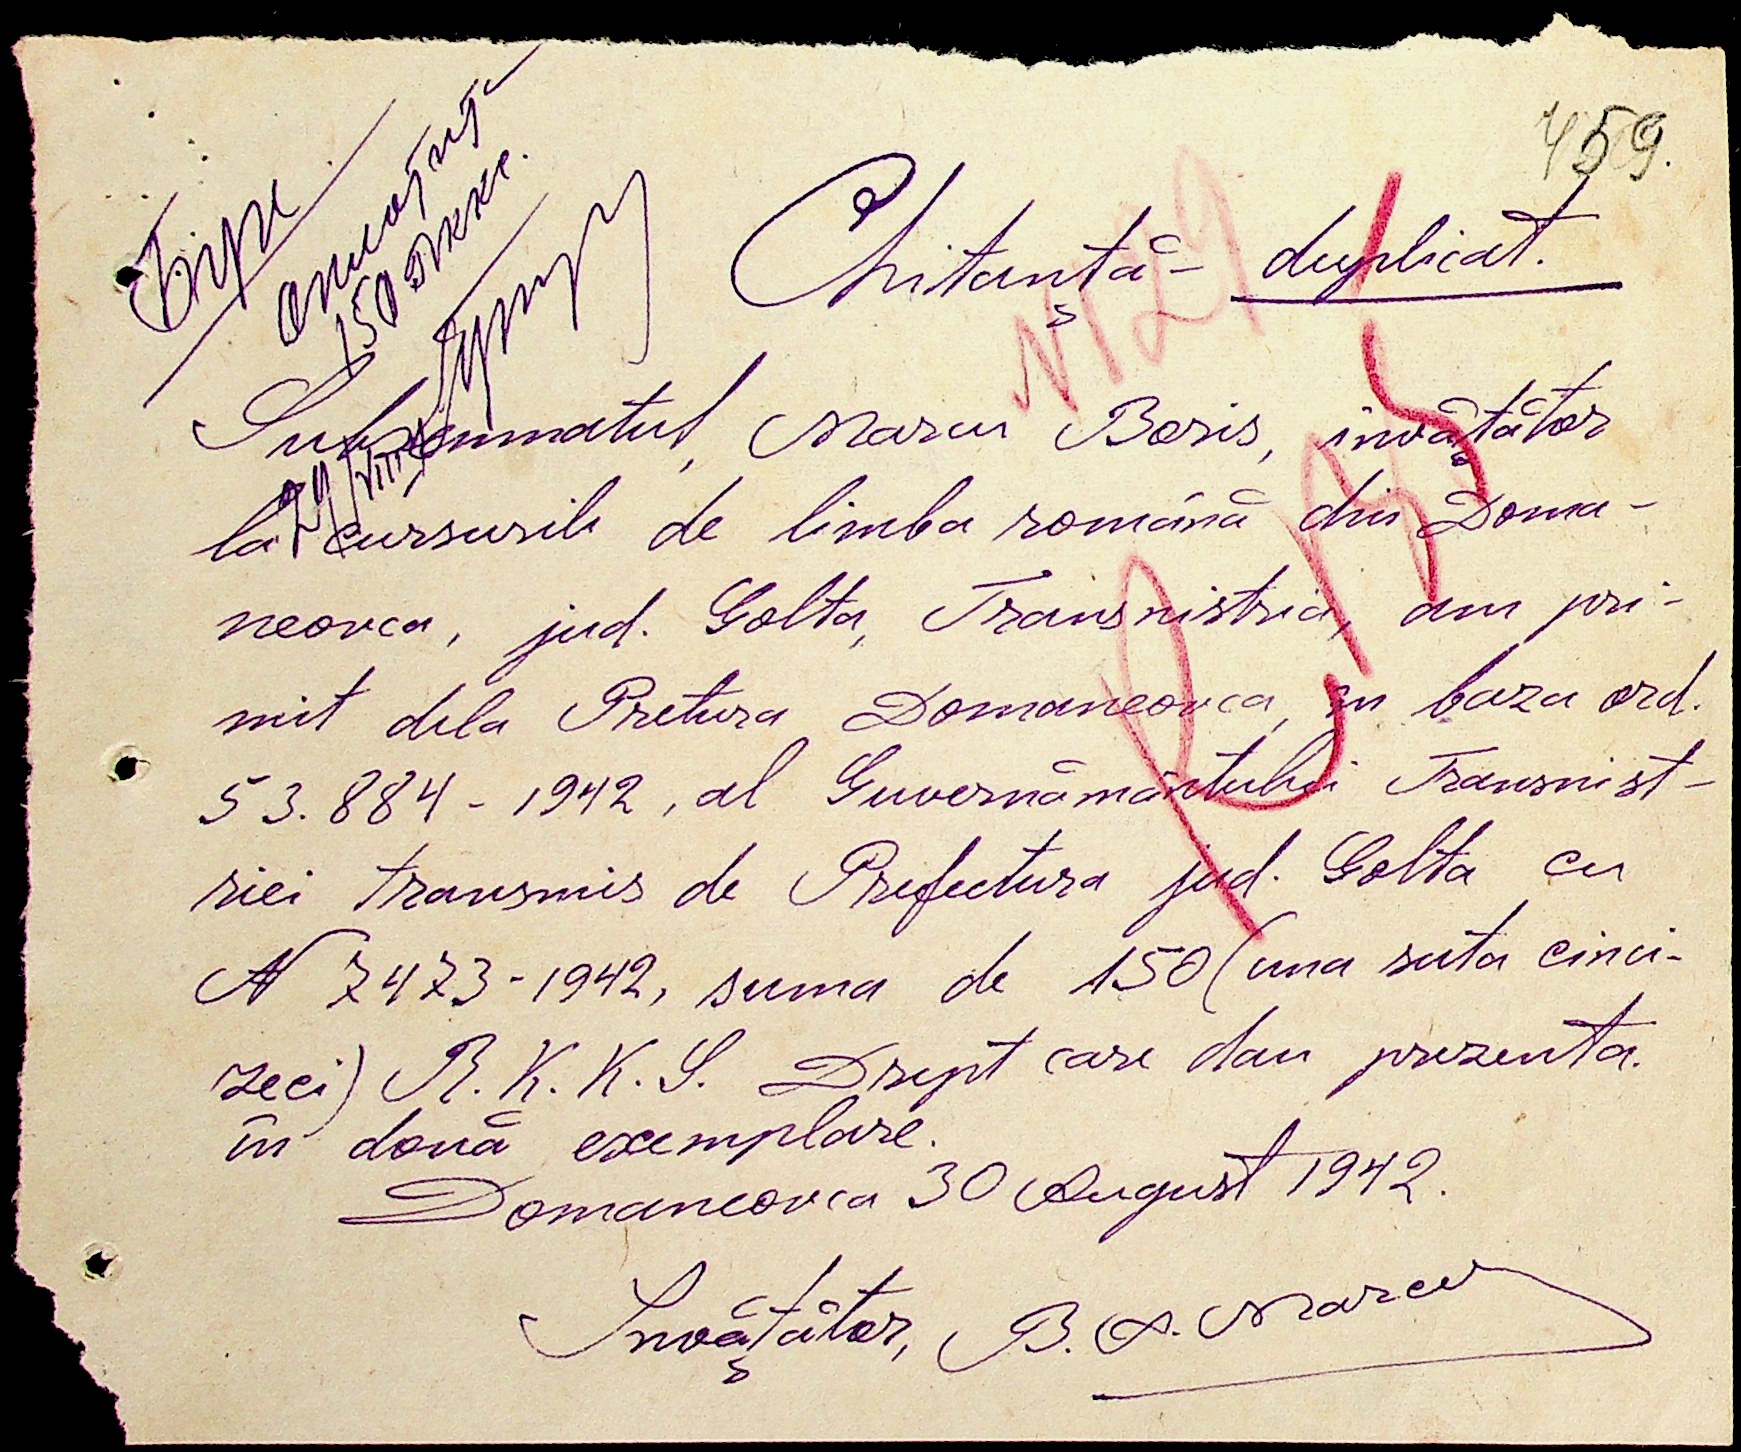 459.
Бух.
оплатит
150
29/VIII
Chitanță - duplicat.
N 29
Subsemnatul, Marcu Boris, învățător
la cursurile de limba română din Doma-
neovca, jud. Golta, Transnistria, am pri-
mit dela Pretura Domaneovca, în baza ord.
53.884 - 1942, al Guvernământului Transnist-
riei transmis de Prefectura jud. Golta cu
N 7473 - 1942, suma de 150 (una suta cinci-
zeci) R.K.K.S. Drept care dau prezenta.
în două exemplare.
Domaneovca 30 August 1942.
Învățător, B. A. Marcu